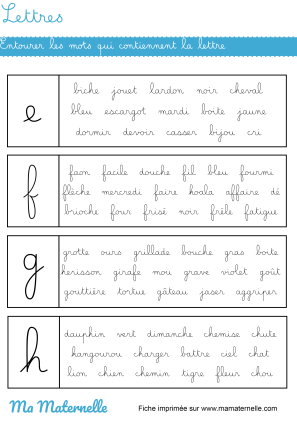 Lettres
Entourer les mots qui contiennent la lettre
e
biche jouet lardon noir cheval
bleu escargot mardi boite jaune
dormir devoir casser bijou cri
f
faon facile douche fil bleu fourmi
flèche mercredi faire koala affaire dé
brioche four frisé noir frêle fatigue
g
grotte ours grillade bouche gras boite
herisson girafe mou grave violet goût
gouttière tortue gâteau jaser aggriper
h
dauphin vert dimanche chemise chute
kangourou charger battre ciel chat
lion chien chemin tigre fleur chou
Ma Maternelle
Fiche imprimée sur www.mamaternelle.com